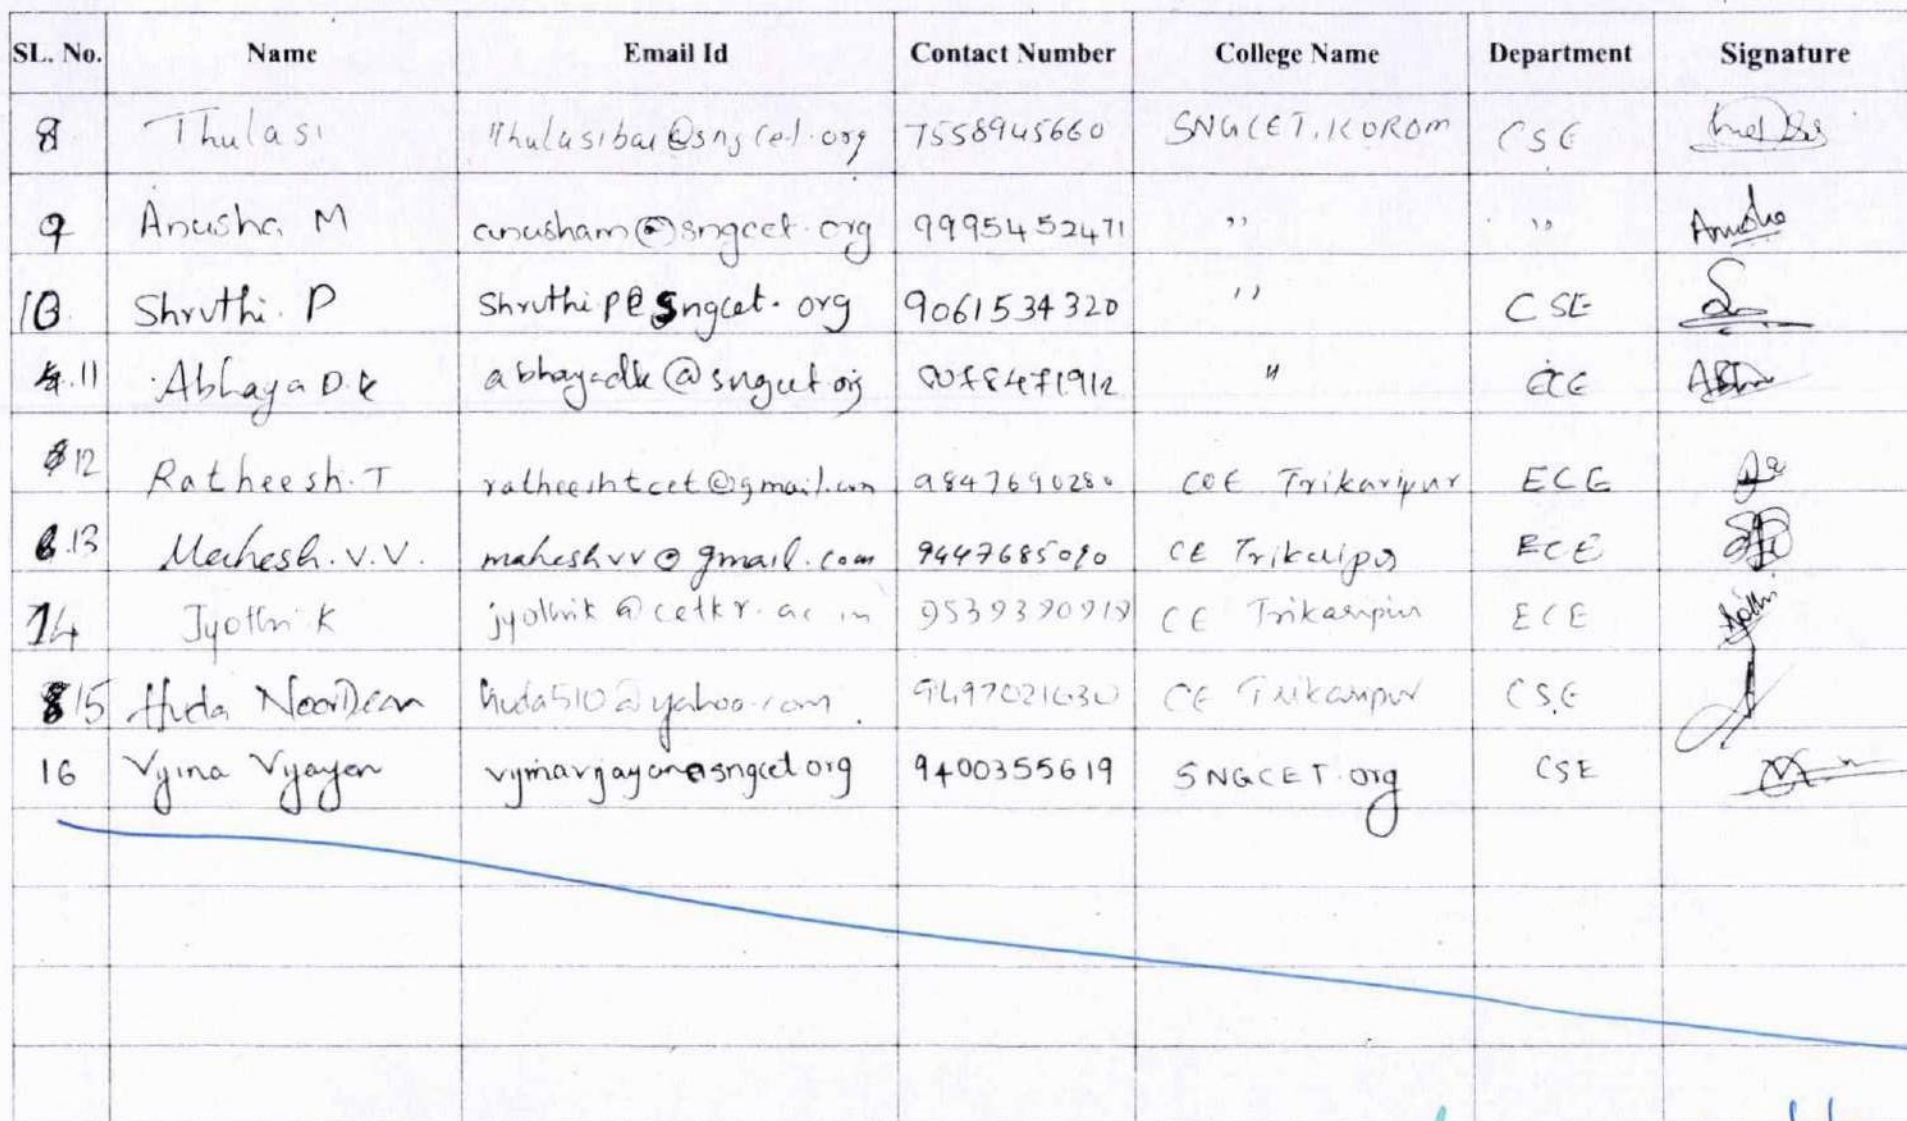 SL. No. Name Email Id Contact Number College Name Department Signature
8 Thulasi thulasibai@sngcet.org 7558945660 SNGCET, KOROM CSE
9 Anusha M anusham@sngcet.org 9995452471 ,, ,, Anusha
10 Shruthi. P Shruthip@sngcet.org 9061534320 ,, CSE
11 Abhaya D.K abhayadk@sngcet.org " ECE
12 Ratheesh.T ratheeshtcet@gmail.com 9847690280 COE Trikaripur ECE
13 Mahesh.V.V. maheshvv@gmail.com 9447685090 CE Trikaripur ECE
14 Jyothi K jyothik@cetkr.ac.in CE Trikaripur ECE
15 Huda NoorDean huda510@yahoo.com 9497021630 CE Trikaripur CSE
16 Vyina Vyayan 9400355619 SNGCET.org CSE